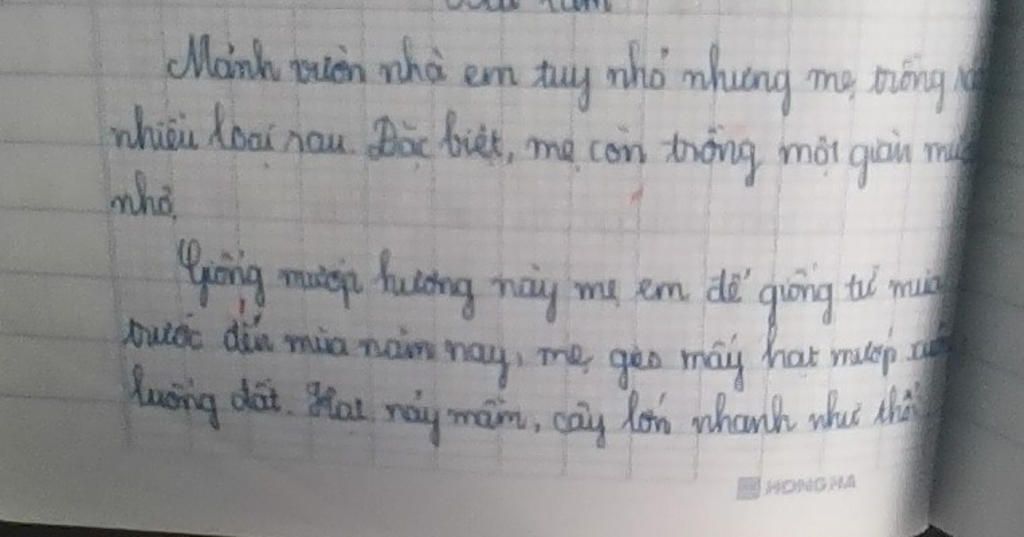 Bài làm
Mảnh vườn nhà em tuy nhỏ nhưng mẹ trồng
nhiều loại rau. Đặc biệt, mẹ còn trồng một giàn
nhỏ.
Giống mướp hương này mẹ em để giống từ mùa
trước đến mùa năm nay, mẹ gieo mấy hạt mướp
luống đất. Hạt nảy mầm, cây lớn nhanh như thổi.
HONG HA